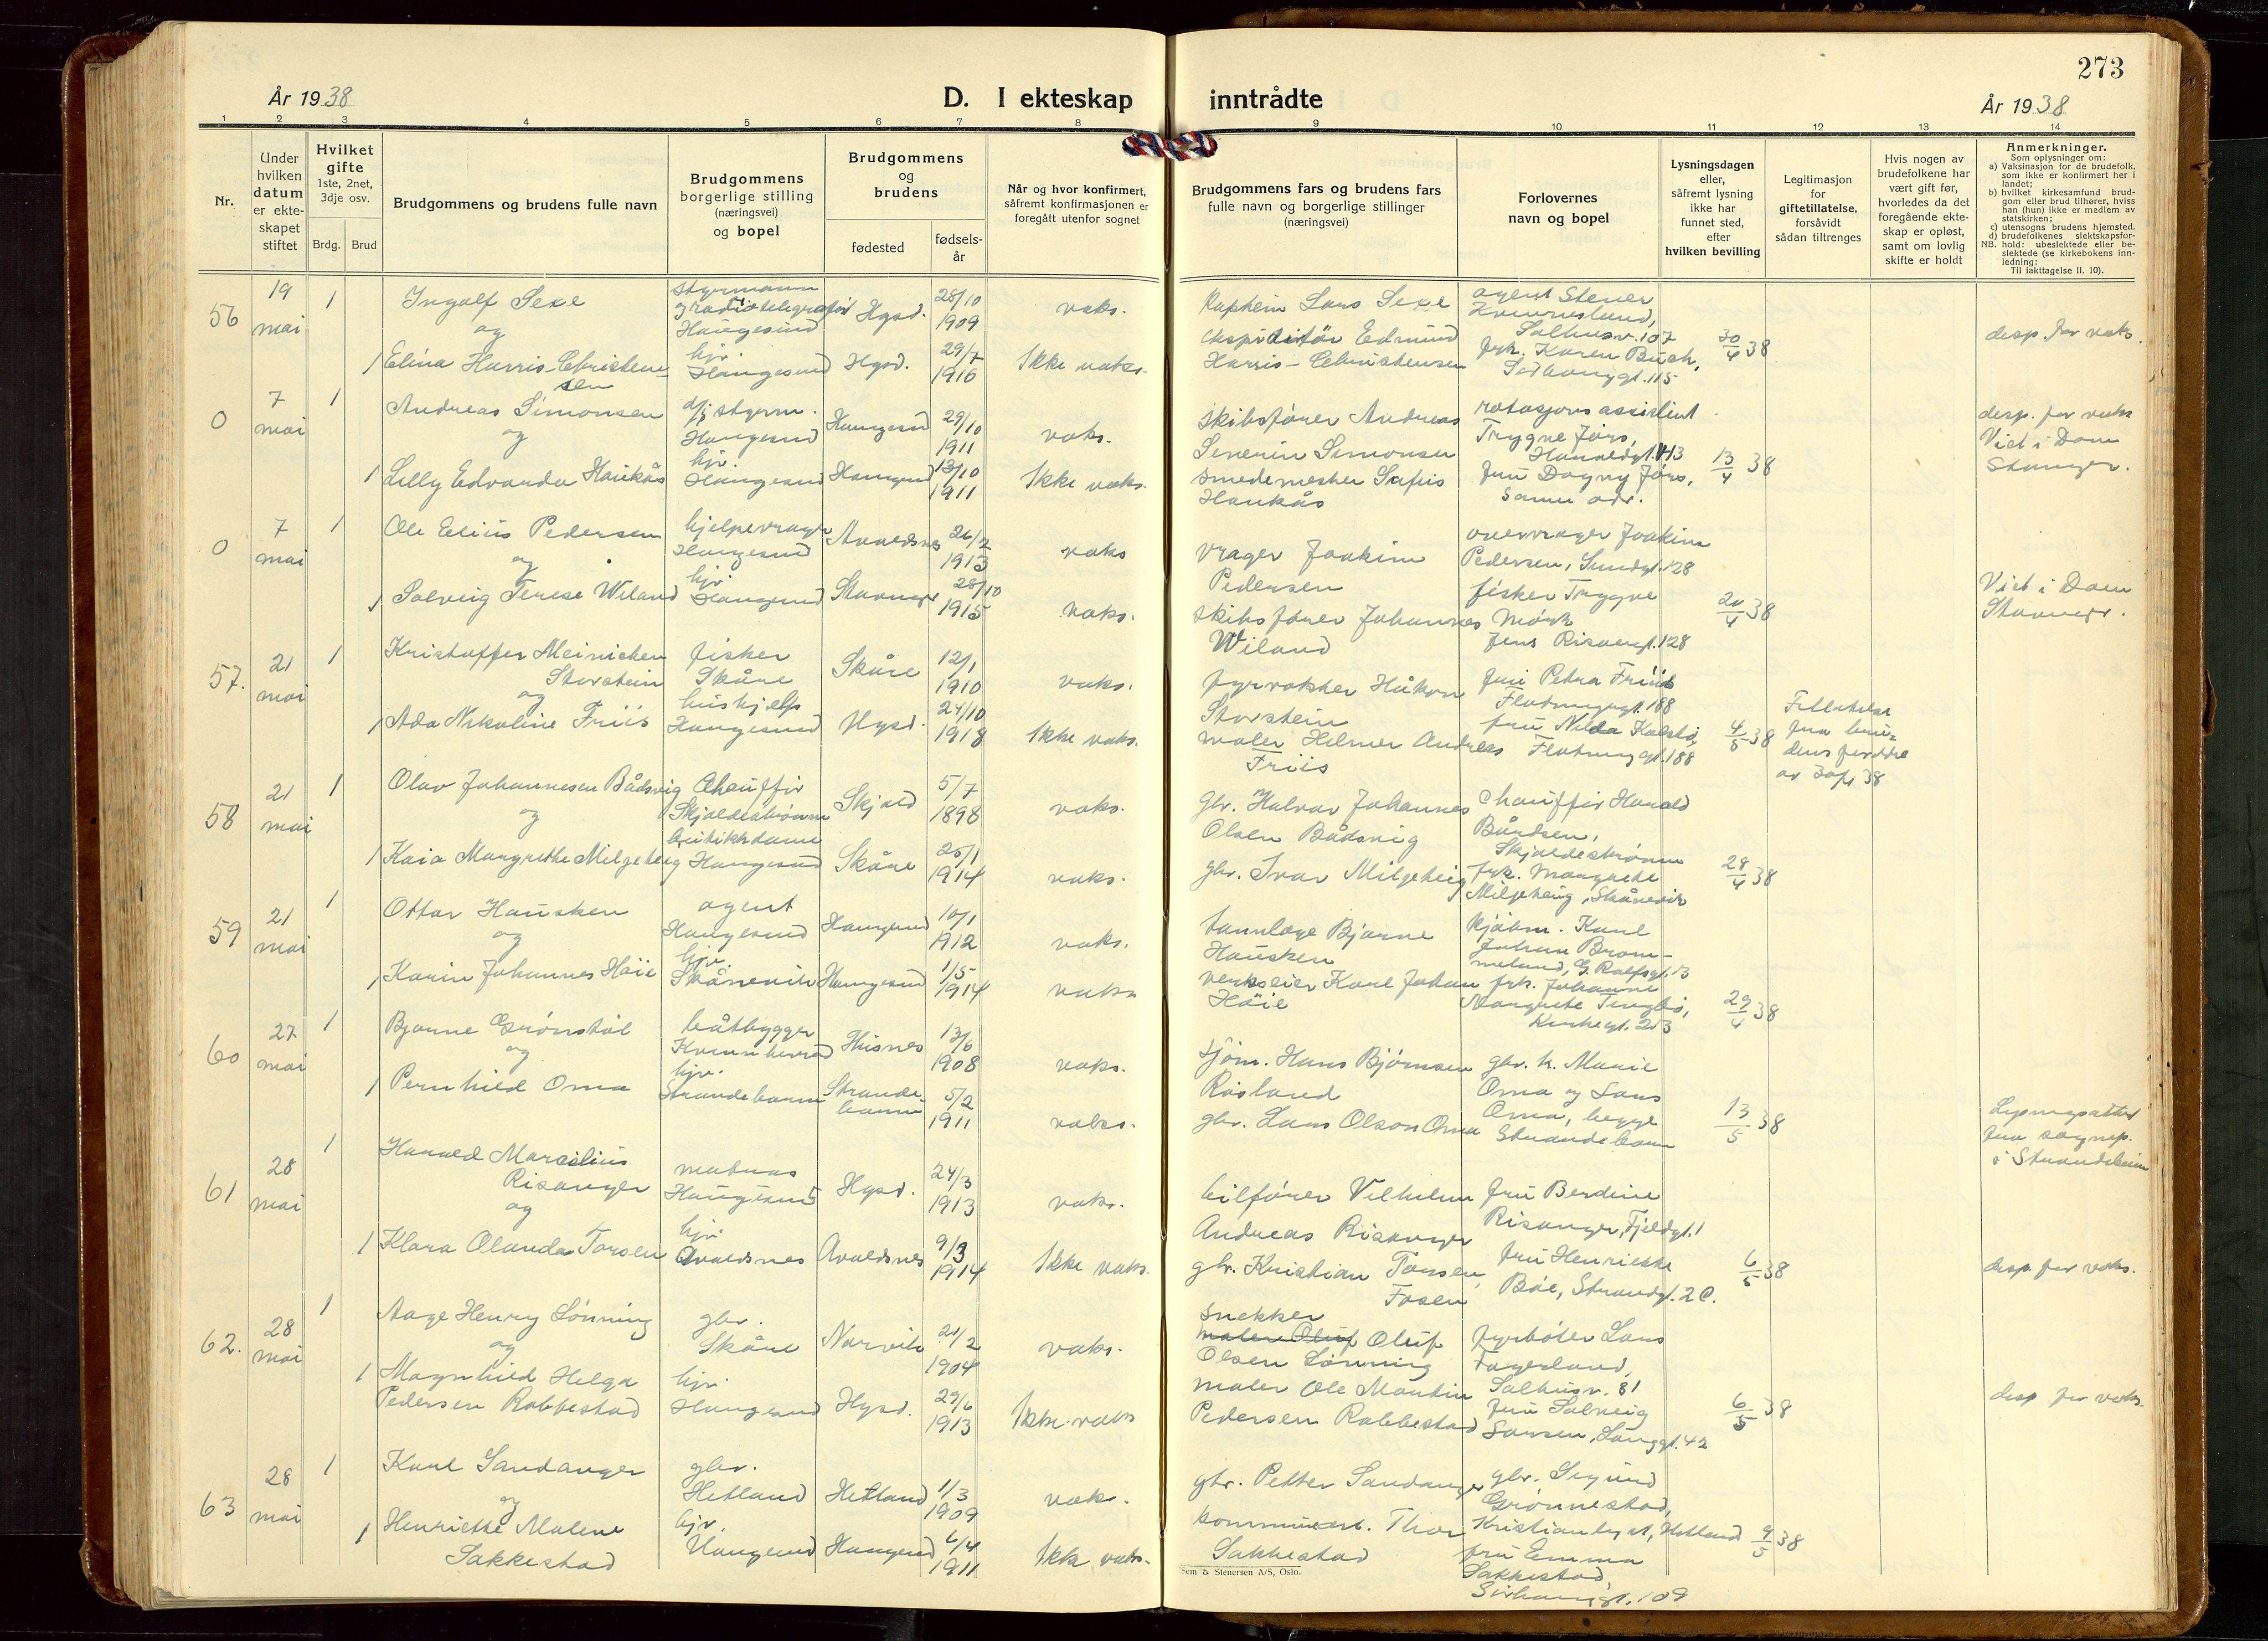 273
År 1938
D. I ekteskap inntrådte
År 1938
1 2 3 4 5 6 7 8 9 10 11 12 13 14
Nr.
Under
hvilken
datum
er ekte-
skapet
stiftet
Hvilket
gifte
1ste, 2net,
3dje osv.
Brdg.
Brud
Brudgommens og brudens fulle navn
Brudgommens
borgerlige stilling
(næringsvei)
og bopel
Brudgommens
og
brudens
fødested
fødsels-
år
Når og hvor konfirmert,
såfremt konfirmasjonen er
foregått utenfor sognet
Brudgommens fars og brudens fars
fulle navn og borgerlige stillinger
(næringsvei)
Forlovernes
navn og bopel
Lysningsdagen
eller,
såfremt lysning
ikke har
funnet sted,
efter
hvilken bevilling
Legitimasjon
for
giftetillatelse,
forsåvidt
sådan tiltrenges
Hvis nogen av
brudefolkene har
vært gift før,
hvorledes da det
foregående ekte-
skap er opløst,
samt om lovlig
skifte er holdt
Anmerkninger.
Som oplysninger om:
a) Vaksinasjon for de brudefolk,
som ikke er konfirmert her i
landet;
b) hvilket kirkesamfund brud-
gom eller brud tilhører, hviss
han (hun) ikke er medlem av
statskirken;
c) utensogns brudens hjemsted.
d) brudefolkenes slektskapsfor-
NB. hold: ubeslektede eller be-
slektede (se kirkebokens inn-
ledning:
Til iakttagelse II. 10).
56
19
mai
1
Ingolf Sexe
og
1 Elina Harris-Christen-
sen
styrmann
og radiotelegrafist
Haugesund
hjv.
Haugesund
Hgsd.
28/10
1909
Hgsd.
29/7
1916
vaks.
Ikke vaks.
kaptein Lars Sexe
ekspeditør Edmund
Harris-Christensen
agent Stener
Kvinnesland,
Salhusv. 107
frk. Karen Busch,
Sørhauggt. 115
30/4 38
desp. for vaks.
0
7
mai
1
Andreas Simonsen
og
1 Lilly Edvarda Haukås
d/s styrm.
Haugesund
hjv.
Haugesund
Haugesund
29/10
1911
Haugesund
13/10
1911
vaks.
Ikke vaks.
skibsfører Andreas
Severin Simonsen
smedemester Sefus
Haukås
rotasjonsassistent
Trygve Jørs,
Haraldgt. 143
fru Dagny Jørs,
samme adr.
13/4 38
desp. for vaks
Viet i Dom
Stavanger.
0
7
mai
1
Ole Elius Pedersen
og
1 Solveig Terese Wiland
hjelpevrager
Haugesund
hjv.
Haugesund
Avaldsnes
26/2
1913
Stavanger
28/10
1915
vaks
vaks.
vrager Joakim
Pedersen
skibsfører Johannes
Wiland
overvrager Joakim
Pedersen, Sundgt. 128
fisker Trygve
Mørk
Jens Risøengt. 128
20/4 38
Viet i Dom
Stavanger.
57.
21
mai
1
Kristoffer Meinichen
Storstein
og
1 Ada Nikoline Friis
fisker
Skåre
hushjelp
Haugesund
Skåre
12/1
1910
Hgsd.
24/10
1918
vaks.
Ikke vaks.
fyrvokter Håkon
Storstein
maler Hilmer Andreas
Friis
fru Petra Friis
Flotmyrgt. 188
fru Nilda Kalstø,
Flotmyrgt. 188
4/5 38
Tillatelse
fra bru-
dens foreldre
av 30/4 38
58
21
mai
1
Olav Johannesen Bådsvig
og
1 Kaia Margrethe Milgeteig
Chauffør
Skjoldastraumen
butikkdame
Haugesund
Skjold
5/7
1898
Skåre
25/1
1914
vaks.
vaks.
gbr. Halvor Johannes
Olsen Bådsvig
gbr. Ivar Milgeteig
Chauffør Harald
Bårdsen,
Skjoldestrømm
frk. Margrete
Milgeteig, Skånevik
28/4 38
59
21
mai
1
Ottar Hausken
og
1 Karin Johannes Høie
agent
Haugesund
hjv.
Skånevik
Haugesund
10/1
1912
Haugesund
1/5
1914
vaks.
vaks
tannlæge Bjarne
Hausken
verkseier Karl Johan
Høie
kjøbm. Karl
Johan Brom-
meland, G. Rolfsgt. 13
frk. Johanne
Margrete Tungbø,
Kirkegt. 213
29/4 38
60
27
mai
1
Bjarne Grønstøl
og
1 Pernhild Oma
båtbygger
Kvinnherad
hjv.
Strandebarm
Husnes
13/6
1908
Strande-
barm
5/2
1911
vaks.
vaks.
sjøm. Hans Bjørnsen
Røsland
gbr. Lars Olson Oma
gbr. k. Marie
Oma og Lars
Oma, begge
Strandebarm
13/5 38
Lysingsattest
fra sognep.
i Strandebarm
61
28
mai
1
Harald Marcelius
Risanger
og
1 Klara Olanda Torsen
matros
Haugesund
hjv.
Avaldsnes
Hgsd.
24/3
1913
Avaldsnes
9/3
1914
vaks.
Ikke vaks.
bilfører Vilhelm
Andreas Risanger
gbr. Kristian Torsen,
Fosen
fru Berdine
Risanger, Fjeldgt. 1
fru Henrikke
Bøe, Strandgt. 2 C.
6/5 38
desp. for vaks.
62.
28
mai
1
Aage Henry Lønning
og
1 Magnhild Helga
Pedersen Rabbestad
gbr.
Skåre
hjv.
Haugesund
Narvik
21/2
1904
Hgsd.
29/6
1913
vaks.
Ikke vaks
snekker
maler Oluf Oluf
Olsen Lønning
maler Ole Martin
Pedersen Rabbestad
fyrbøter Lars
Fagerland,
Salhusv. 81
fru Solveig
Larsen, Langgt. 42
6/5 38
desp for vaks.
63
28
mai
1
Karl Sandanger
og
1 Henriette Malene
Sakkestad
gbr.
Hetland
hjv.
Haugesund
Hetland
1/3
1909
Haugesund
6/4
1911
vaks.
Ikke vaks.
gbr. Petter Sandanger
kommunearb. Thor
Sakkestad
gbr. Sigurd
Grønnestad,
Kristianlyst, Hetland
fru Emma
Sakkestad
Sørhauggt. 109
9/5 38
Sem & Stenersen A/S, Oslo.